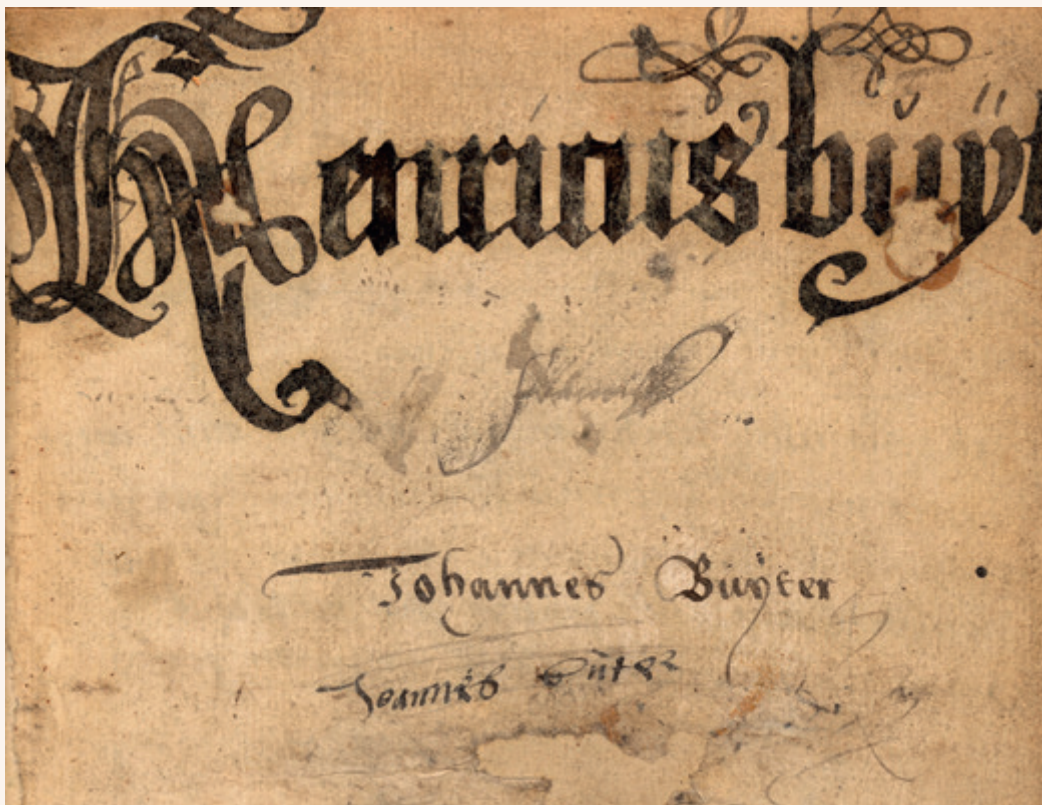 Henricus buÿt
Johannes Buÿter
Joannes Buter